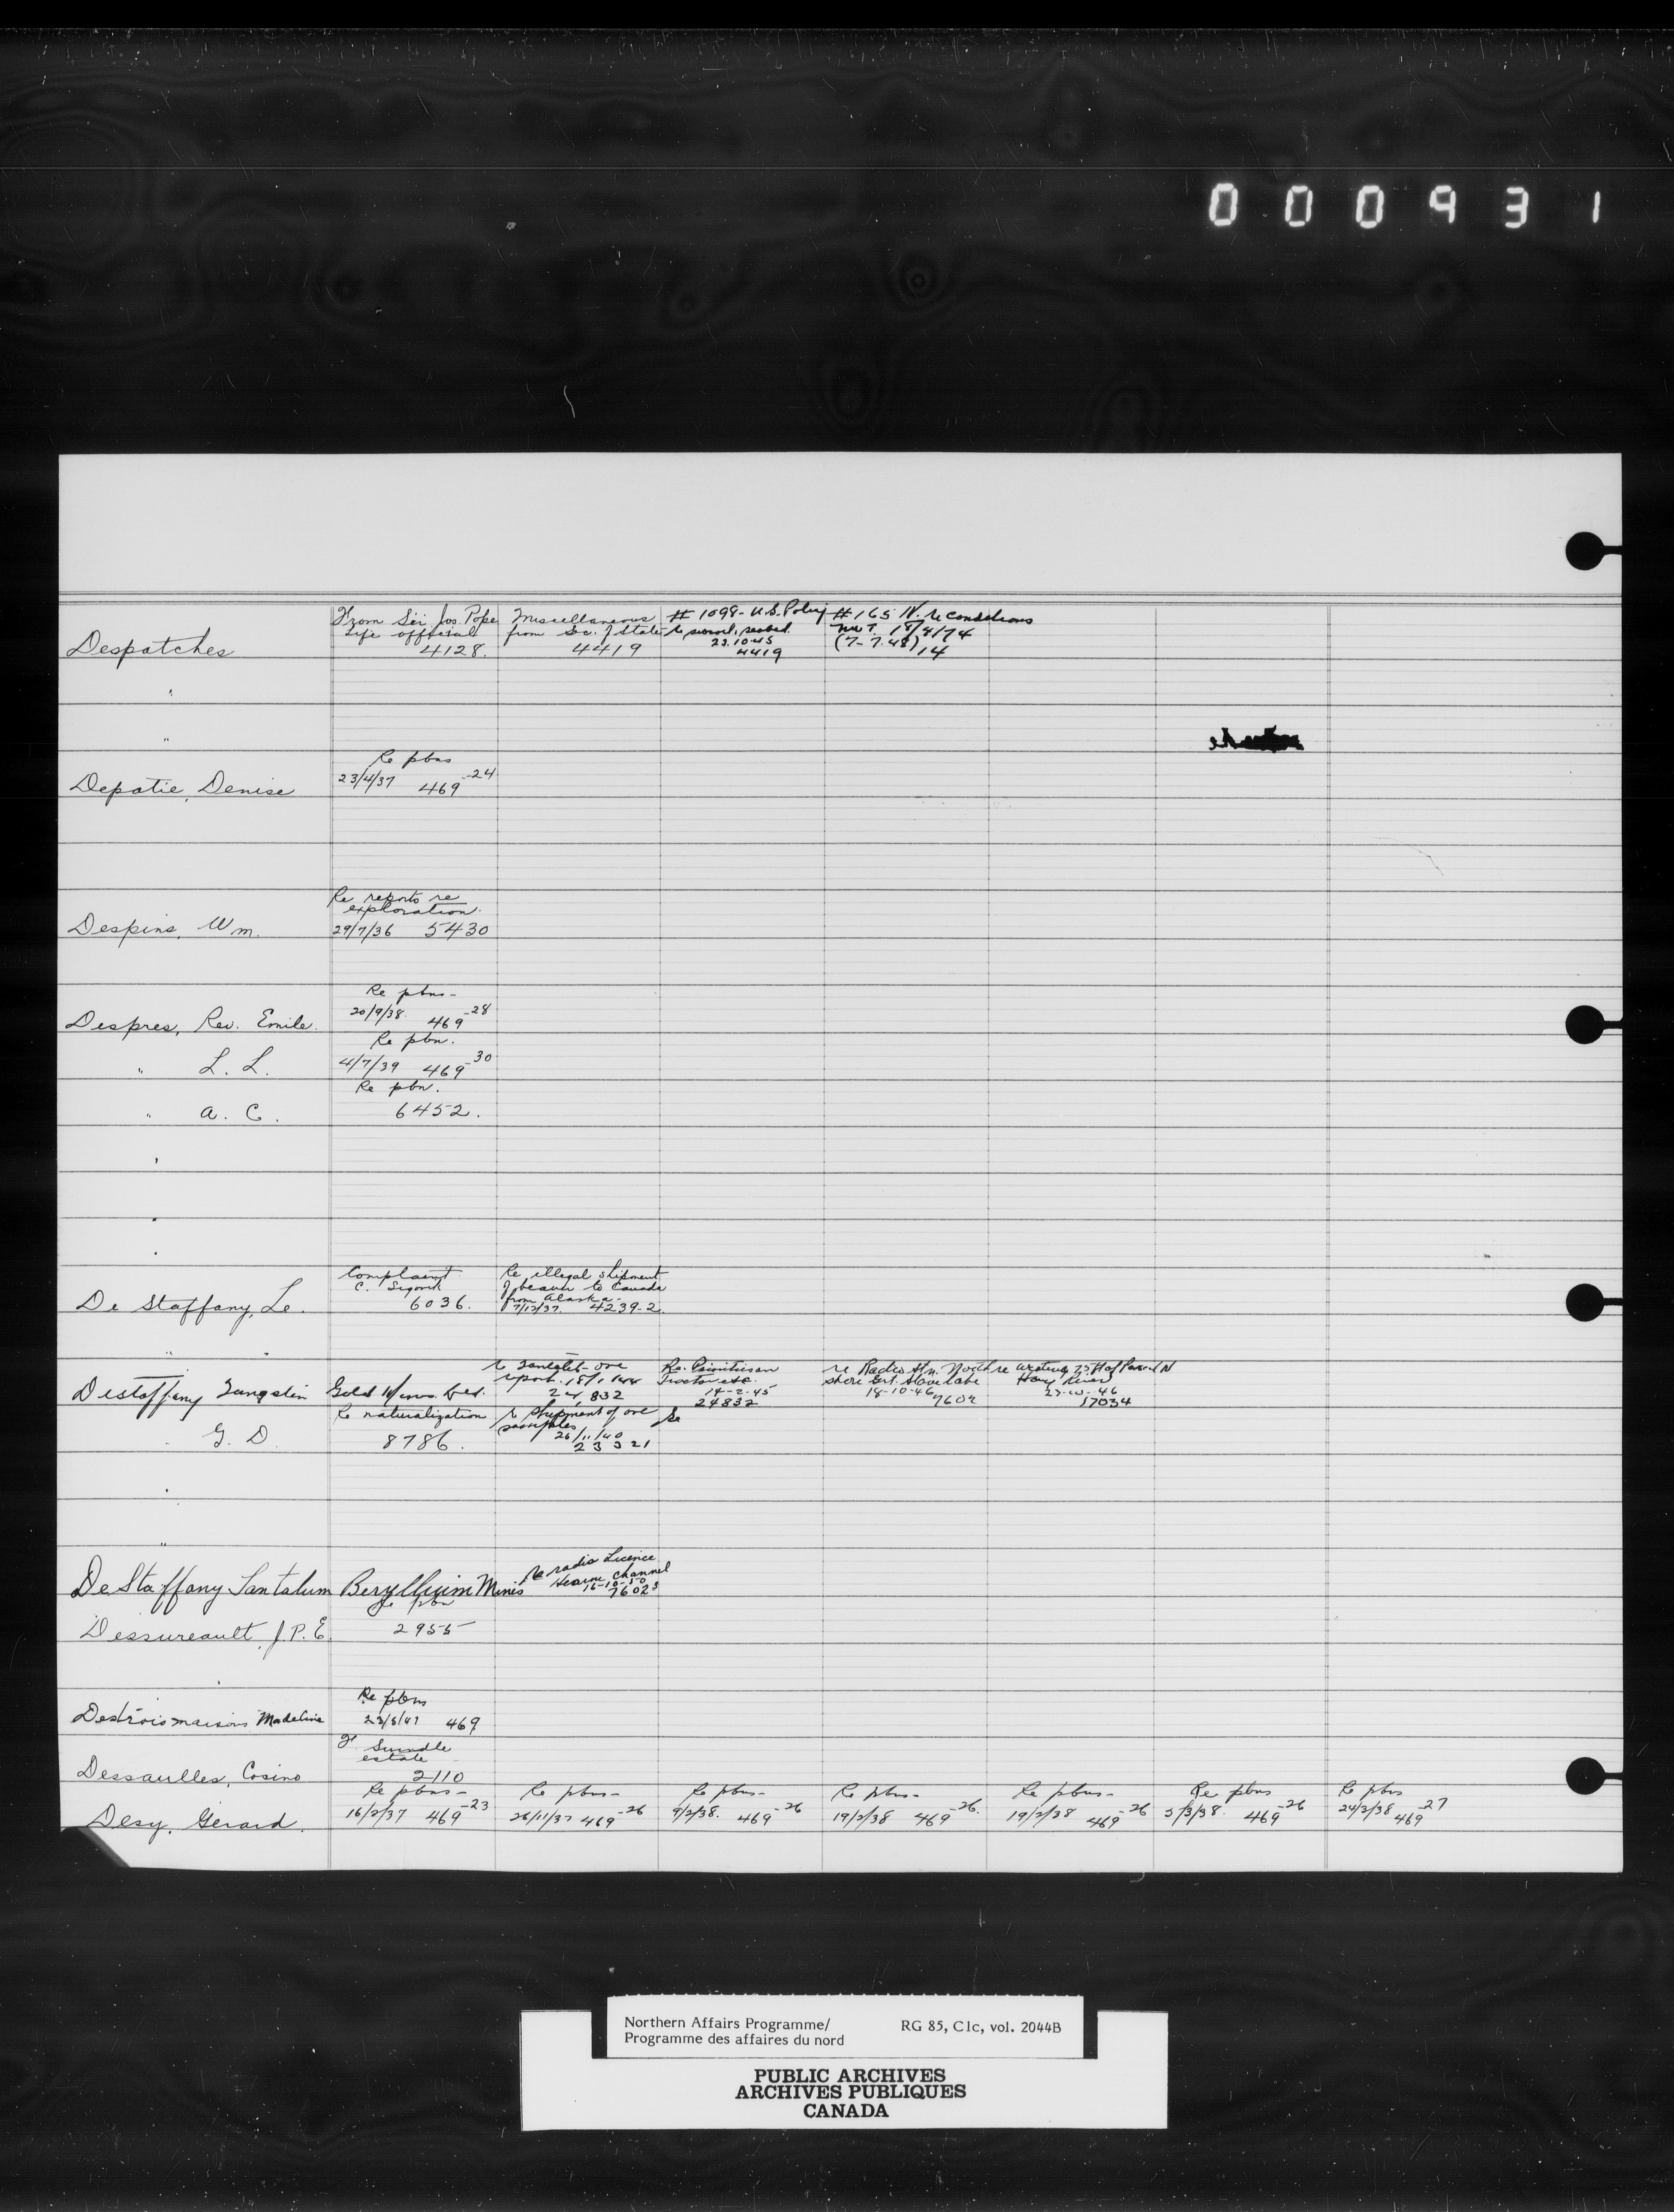 000931
From Sir Jos. Pope
Life official
4128.
Miscellaneous
from Sec. of State
4419
# 1098 - U.S. Policy
23.10.45
4419
# 165 N. re conditions
NWT. 18/4/74
(7-7-48) 14
Despatches
"
"
Re pbns
23/4/37 469-24
Depatie, Denise
Re reports re
exploration.
29/7/36 5430
Despins, Wm.
Re pbns-
20/9/38. 469-28
Despres, Rev. Emile.
Re pbn.
4/7/39 469-30
" L. L.
Re pbn.
6452.
" A. C.
Complaint
C.
6036.
Re illegal shipment
of beaver to Canada
from Alaska-
7/12/37. 4239-2.
De Staffany, Le.
Destaffany Tungsten Gold Mines Ltd.
24,832
Re. Priorities on
Tractor etc.
14-2-45
24832
re Radio Stn. North
shore Grt. Slave Lake
18-10-46 7602
Hay River
23-10-46
17034
G. D.
Re naturalization
8786.
re shipment of ore
samples
26/11/40
23321
Re
De Staffany Tantalum Beryllium Mines
Re radio Licence
Hearne Channel
16-10-50
7602
Re pbn
2955
Dessureault, J.P.E.
Re pbns
469
Destroismaisons Madeline
Swindle
estate
2110
Dessaulles, Cosino
Re pbns- Re pbns- Re pbns- Re pbns- Re pbns- Re pbns Re pbns
16/2/37 469-23 26/11/37 469-26 9/2/38. 469-26 19/2/38 469-26. 19/2/38 469-26 3/3/38. 469-26 24/2/38 469-27
Desy, Gerard.
Northern Affairs Programme/
Programme des affaires du nord
RG 85, C1c, vol. 2044B
PUBLIC ARCHIVES
ARCHIVES PUBLIQUES
CANADA